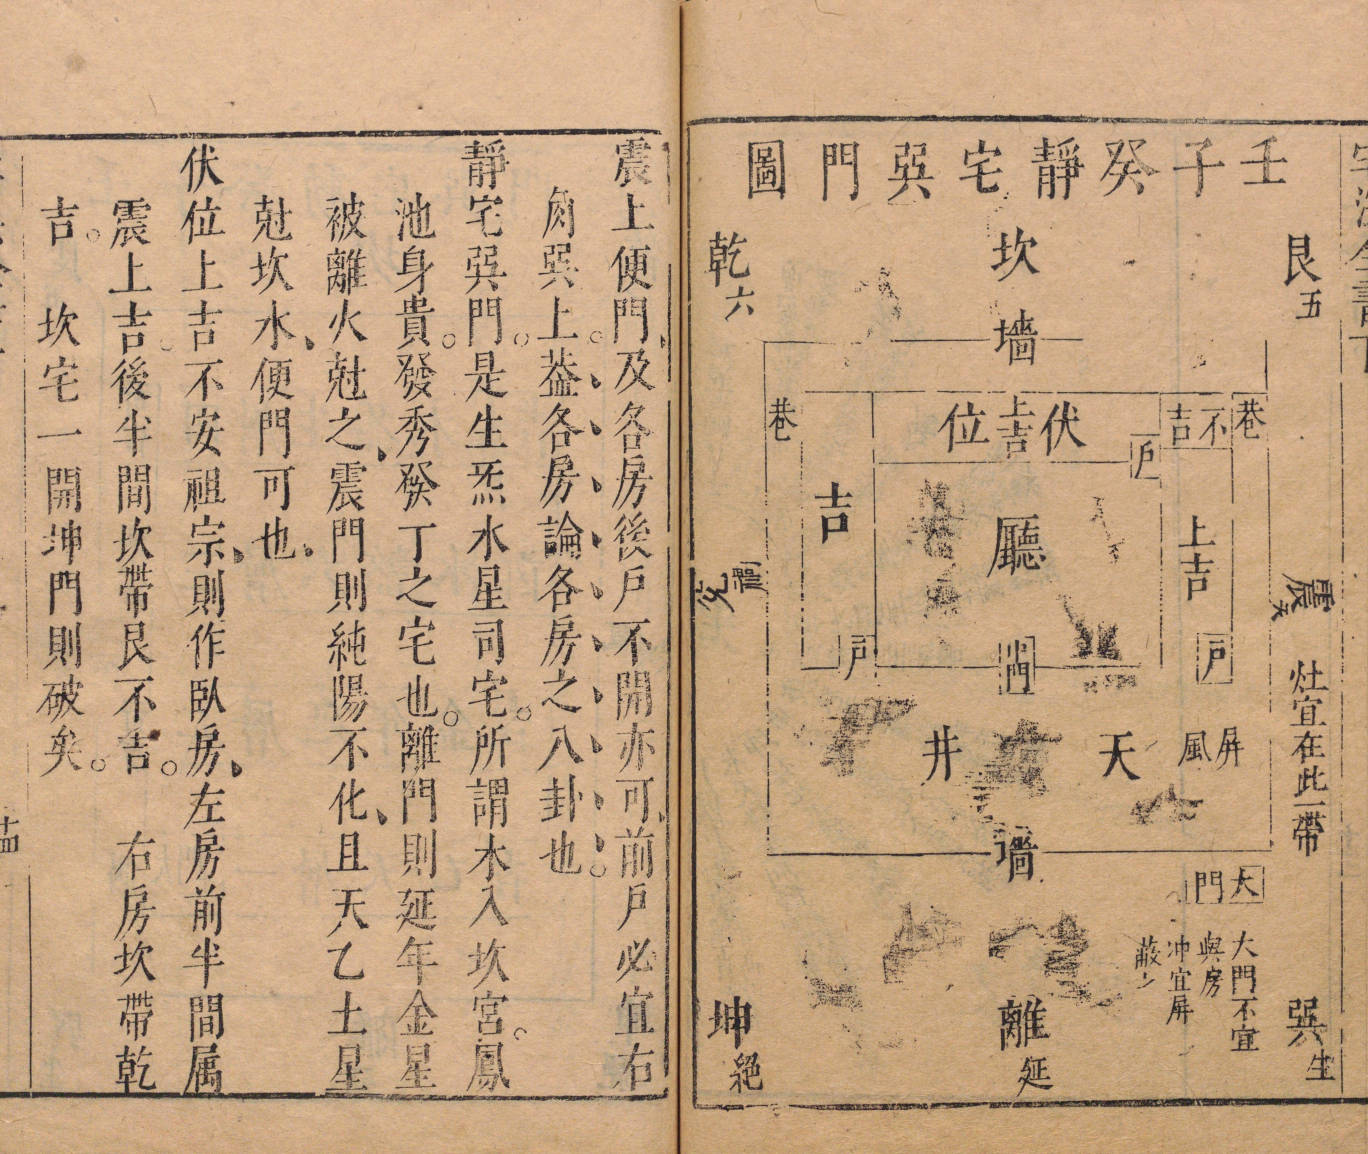 壬子癸靜宅巽門圖
艮五
坎
乾六
墻
巷
不吉
伏位
上吉
巷
戶
吉
廳
上吉
震天
禍
兌
戶
門
戶
灶宜在此一帶
屏風
天井
墻
大門
大門不宜
與房
冲宜屏
蔽之
巽生
離延
坤絕
震上便門及各房後戶不開亦可前戶必宜右
角巽上葢各房論各房之八卦也
靜宅巽門是生炁水星司宅所謂木入坎宮鳳
池身貴發秀發丁之宅也離門則延年金星
被離火尅之震門則純陽不化且天乙土星
尅坎水便門可也
伏位上吉不安祖宗則作臥房左房前半間属
震上吉後半間坎帶艮不吉 右房坎帶乾
吉 坎宅一開坤門則破矣
十四